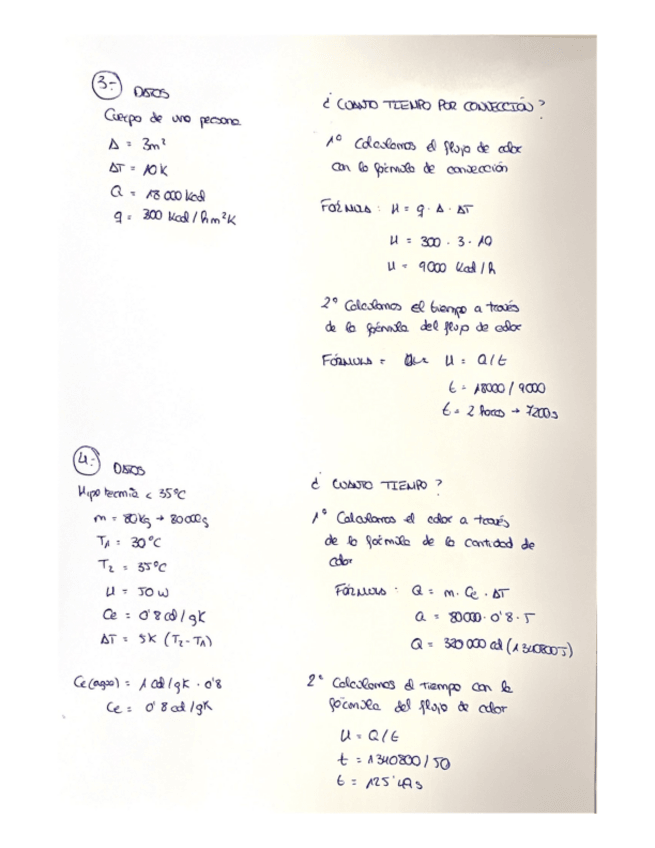 3.- DATOS
Cuerpo de una persona
A = 3m²
ΔT = 10K
Q = 18 000 kcal
q = 300 Kcal / h m² K
¿ CUANTO TIEMPO POR CONVECCIÓN ?
1º Calculamos el flujo de calor
con la fórmula de convección
FÓRMULA : H = q · A · ΔT
H = 300 · 3 · 10
H = 9000 Kcal / h
2º Calculamos el tiempo a través
de la fórmula del flujo de calor
FÓRMULA = H = Q/t
t = 18000 / 9000
t = 2 horas → 7200s
4.- DATOS
Hipotermia < 35ºC
m = 80kg → 80000g
T1 = 30ºC
T2 = 35ºC
H = 50 W
Ce = 0'8 cal / gK
ΔT = 5K (T2 - T1)
Ce (agua) = 1 cal / gK · 0'8
Ce = 0'8 cal / gK
¿ CUANTO TIEMPO ?
1º Calculamos el calor a través
de la fórmula de la cantidad de
calor
FÓRMULA : Q = m · Ce · ΔT
Q = 80000 · 0'8 · 5
Q = 320 000 cal (1340800J)
2º Calculamos el tiempo con la
fórmula del flujo de calor
H = Q/t
t = 1340800 / 50